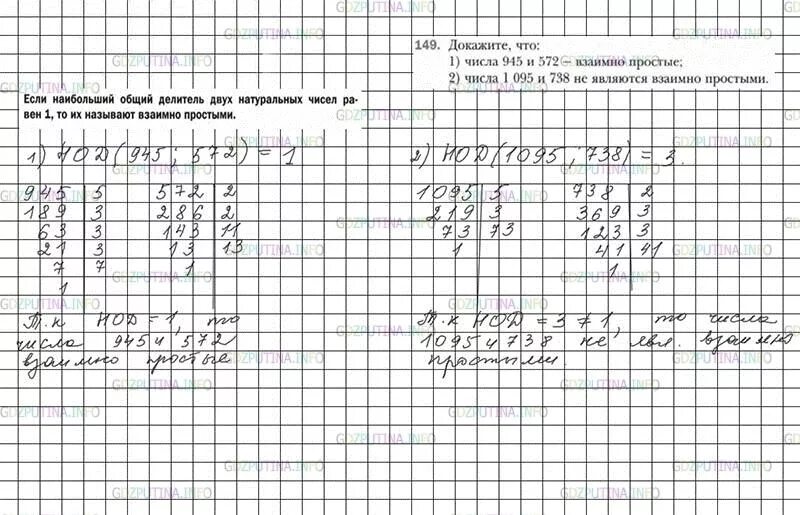 149. Докажите, что:
1) числа 945 и 572 – взаимно простые;
2) числа 1 095 и 738 не являются взаимно простыми.
Если наибольший общий делитель двух натуральных чисел ра-
вен 1, то их называют взаимно простыми.
1) НОД (945 ; 572) = 1
945 | 5 572 | 2
189 | 3 286 | 2
63 | 3 143 | 11
21 | 3 13 | 13
7 | 7 1
1
Т.к НОД = 1, то
числа 945 и 572
взаимно простые
2) НОД (1095 ; 738) = 3.
1095 | 5 738 | 2
219 | 3 369 | 3
73 | 73 123 | 3
1 41 | 41
1
Т.к НОД = 3 ≠ 1, то числа
1095 и 738 не явл. взаимно
простыми.
GDZPUTINA.INFO